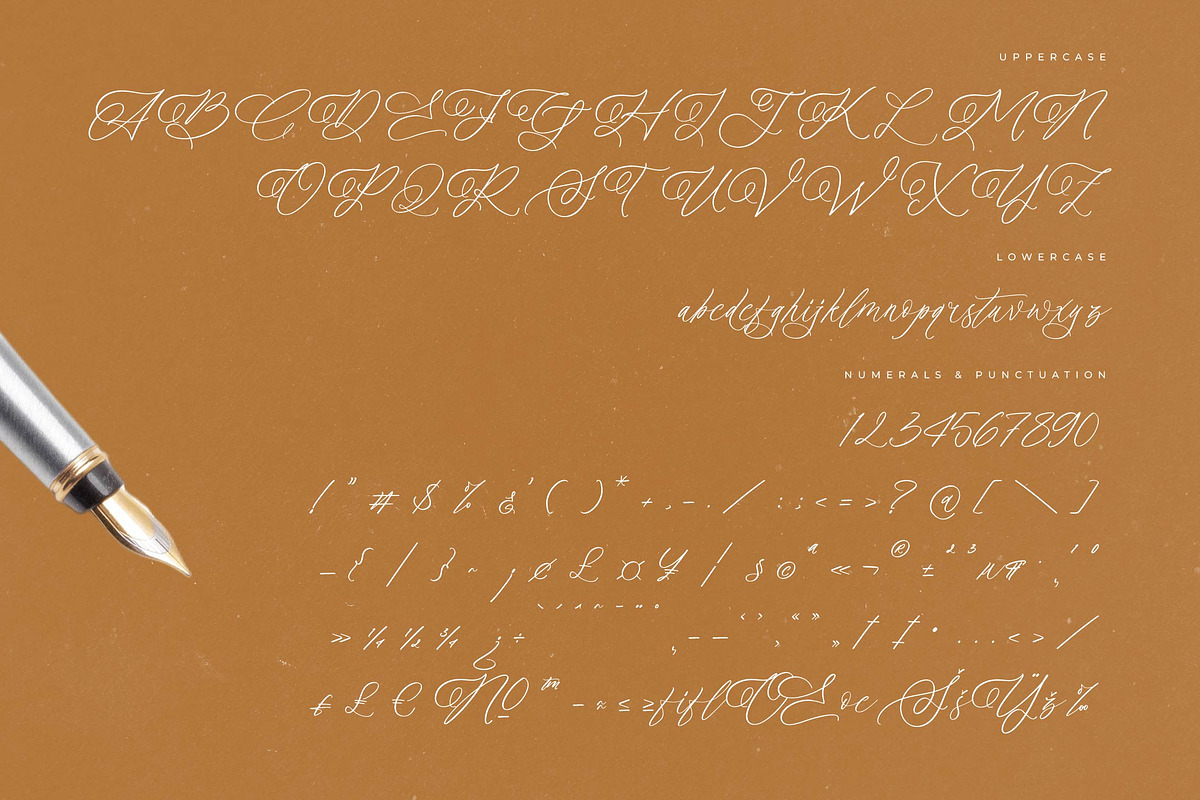 UPPERCASE
ABCDEFGHIJKLMN
OPQRSTUVWXYZ
LOWERCASE
abcdefghijklmnopqrstuvwxyz
NUMERALS & PUNCTUATION
1234567890
! " # $ % & ' ( ) * + , - . / : ; < = > ? @ [ \ ]
_ { | } ~ ¡ ¢ £ ¤ ¥ ¦ § © ª « ¬ ® ± ² ³ µ ¶ · ¸ ¹ º
» ¼ ½ ¾ ¿ ÷ ˆ ˜ ¯ ‚ – — ‹ › « » „ † ‡ • … < > ⁄
₤ £ € № ™ − ≈ ≤ ≥ fi fl Œ œ Š š Ÿ ž ‰